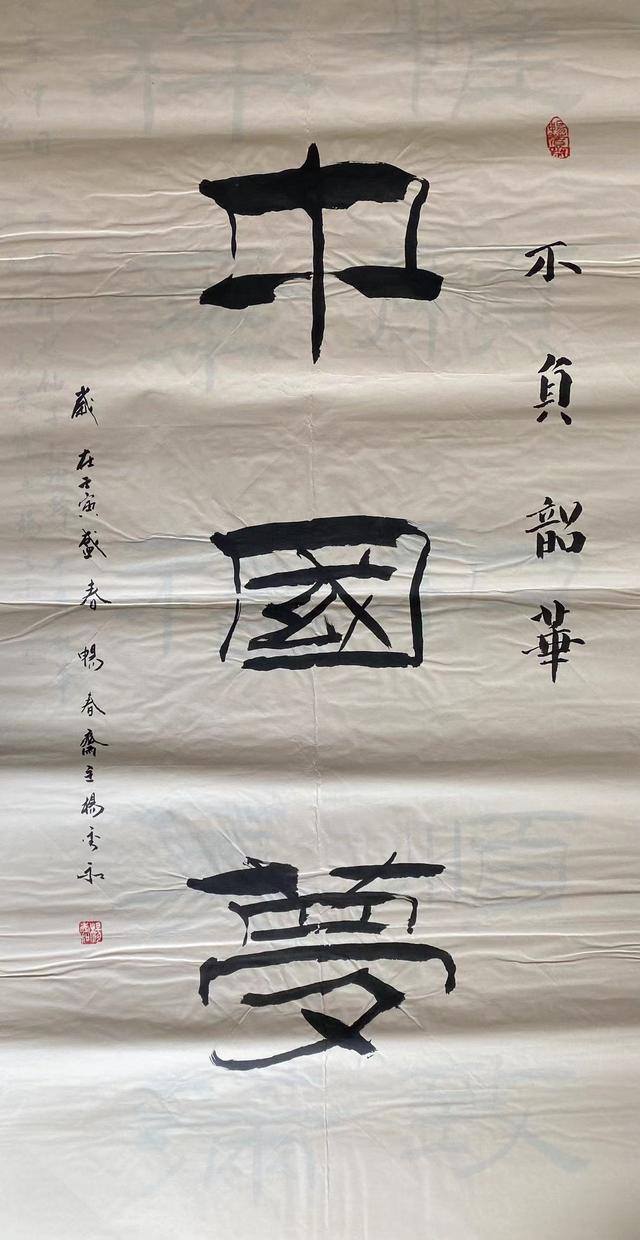 不負韶華
中國夢
歲在壬寅盛春暢春齋主楊秀和